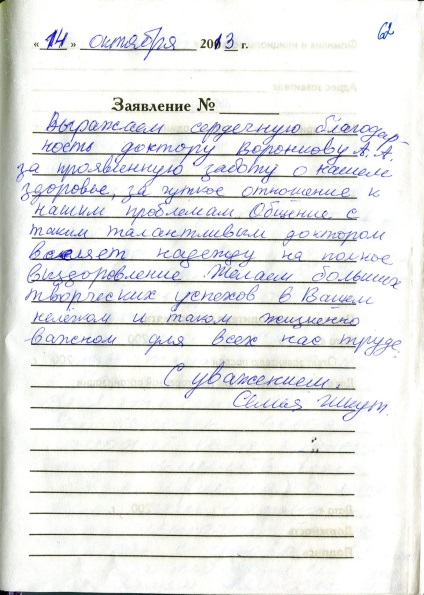 62
« 14 » октября 2013 г.
Заявление №
Выражаем сердечную благодар-
ность доктору Воронцову А. А.
за проявленную заботу о нашем
здоровье, за чуткое отношение к
нашим проблемам. Общение с
таким талантливым доктором
вселяет надежду на полное
выздоровление. Желаем больших
творческих успехов в Вашем
нелёгком и таком жизненно
важном для всех нас труде.
С уважением.
Семья